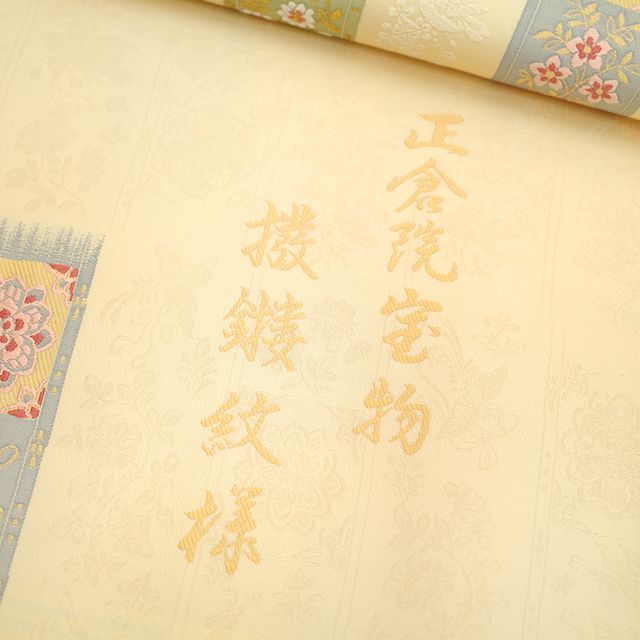 正倉院宝物
撥鏤紋様